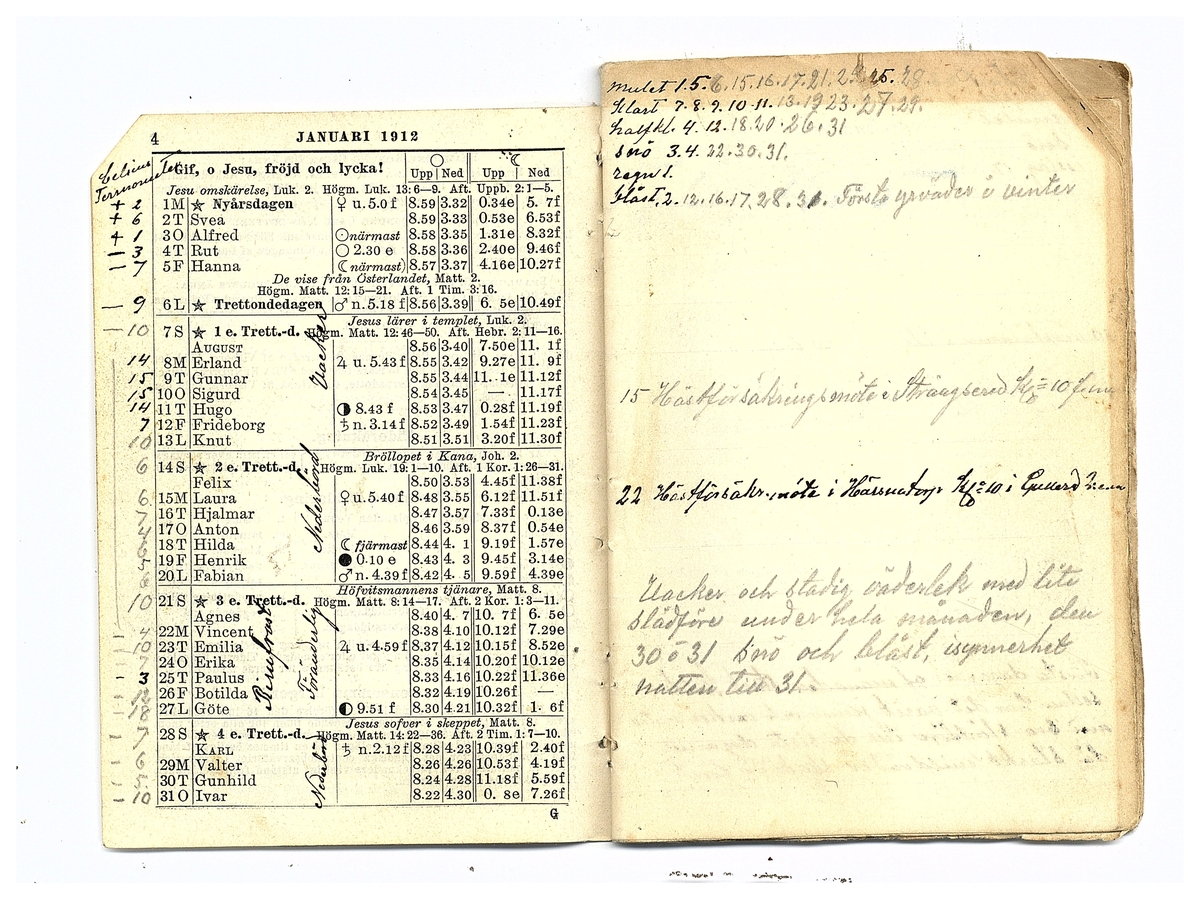 4 JANUARI 1912
Celsius
Termometer
Gif, o Jesu, fröjd och lycka! ○ Upp Ned ☾ Upp Ned
Jesu omskärelse, Luk. 2. Högm. Luk. 13: 6—9. Aft. Uppb. 2: 1—5.
+ 2 1 M ☆ Nyårsdagen ♀ u. 5.0 f 8.59 3.32 0.34e 5. 7f
+ 6 2 T Svea 8.59 3.33 0.53e 6.53f
+ 1 3 O Alfred ☉närmast 8.58 3.35 1.31e 8.32f
— 3 4 T Rut ○ 2.30 e 8.58 3.36 2.40e 9.46f
— 7 5 F Hanna ☾närmast 8.57 3.37 4.16e 10.27f
De vise från Österlandet, Matt. 2.
Högm. Matt. 12: 15—21. Aft. 1 Tim. 3: 16.
— 9 6 L ☆ Trettondedagen ♂ n. 5.18 f 8.56 3.39 6. 5e 10.49f
Jesus lärer i templet, Luk. 2.
— 10 7 S ☆ 1 e. Trett.-d. Högm. Matt. 12: 46—50. Aft. Hebr. 2: 11—16.
AUGUST 8.56 3.40 7.50e 11. 1f
14 8 M Erland ♃ u. 5.43 f 8.55 3.42 9.27e 11. 9f
15 9 T Gunnar 8.55 3.44 11. 1e 11.12f
15 10 O Sigurd 8.54 3.45 — 11.17f
14 11 T Hugo ◑ 8.43 f 8.53 3.47 0.28f 11.19f
7 12 F Frideborg ♄ n. 3.14 f 8.52 3.49 1.54f 11.23f
10 13 L Knut 8.51 3.51 3.20f 11.30f
Vacker
Bröllopet i Kana, Joh. 2.
6 14 S ☆ 2 e. Trett.-d. Högm. Luk. 19: 1—10. Aft. 1 Kor. 1: 26—31.
Felix 8.50 3.53 4.45f 11.38f
6 15 M Laura ♀ u. 5.40 f 8.48 3.55 6.12f 11.51f
7 16 T Hjalmar 8.47 3.57 7.33f 0.13e
4 17 O Anton 8.46 3.59 8.37f 0.54e
6 18 T Hilda ☾ fjärmast 8.44 4. 1 9.19f 1.57e
19 F Henrik ● 0.10 e 8.43 4. 3 9.45f 3.14e
8 20 L Fabian ♂ n. 4.39 f 8.42 4. 5 9.59f 4.39e
Nederbörd
Höfvitsmannens tjänare, Matt. 8.
10 21 S ☆ 3 e. Trett.-d. Högm. Matt. 8: 14—17. Aft. 2 Kor. 1: 3—11.
Agnes 8.40 4. 7 10. 7f 6. 5e
4 22 M Vincent 8.38 4.10 10.12f 7.29e
10 23 T Emilia ♃ u. 4.59 f 8.37 4.12 10.15f 8.52e
7 24 O Erika 8.35 4.14 10.20f 10.12e
3 25 T Paulus 8.33 4.16 10.22f 11.36e
12 26 F Botilda 8.32 4.19 10.26f —
27 L Göte ◐ 9.51 f 8.30 4.21 10.32f 1. 6f
Rimfrost
Föränderlig
Jesus sofver i skeppet, Matt. 8.
7 28 S ☆ 4 e. Trett.-d. Högm. Matt. 14: 22—36. Aft. 2 Tim. 1: 7—10.
KARL ♄ n. 2.12 f 8.28 4.23 10.39f 2.40f
6 29 M Valter 8.26 4.26 10.53f 4.19f
30 T Gunhild 8.24 4.28 11.18f 5.59f
— 10 31 O Ivar 8.22 4.30 0. 8e 7.26f
Nederbörd
G
mulet 1. 5. 6. 15. 16. 17. 21. 25. 28.
klart 7. 8. 9. 10. 11. 13. 19 23. 27. 29.
halfkl. 4. 12. 18. 20. 26. 31
snö 3. 4. 22. 30. 31.
regn 1.
blåst. 2. 12. 16. 17. 28. 31. Första yrväder i vinter
15 Hästförsäkringsmöte i Strängsered Kl 10 f.m
22 Hästförsäkr. möte i Hässnatorp Kl 10 i
Vacker och stadig väderlek med lite
slädföre under hela månaden, den
30 o 31 snö och blåst, isynnerhet
natten till 31.